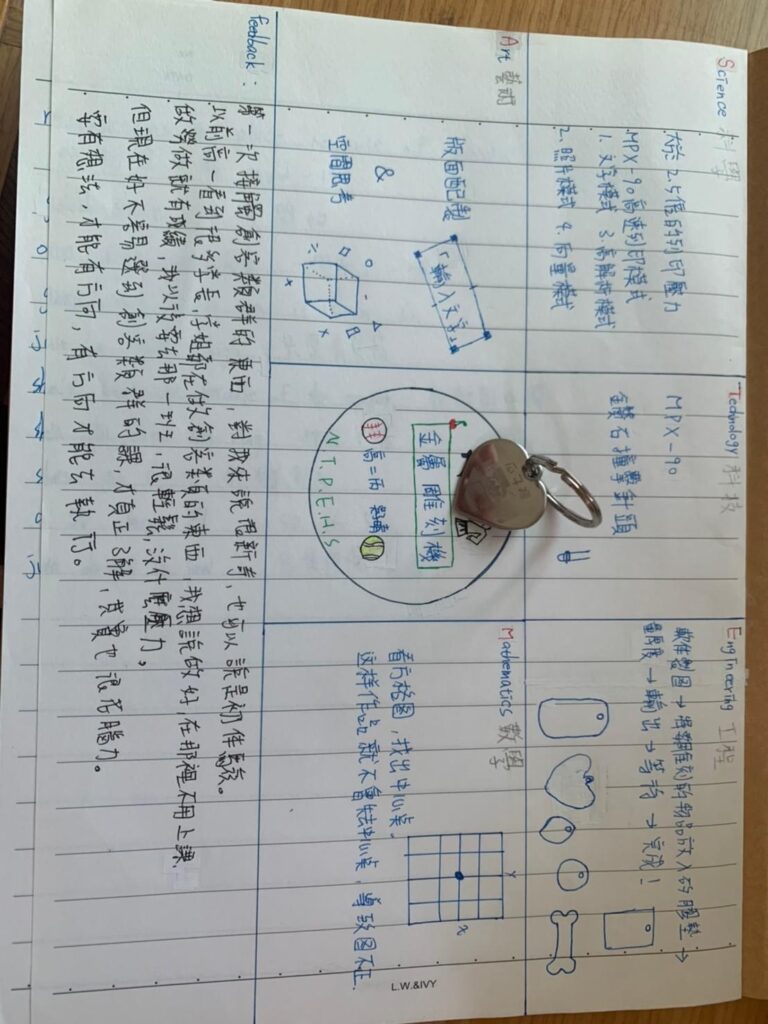 Science 科學
大於 2.5倍的列印壓力
MPX-90高速列印模式
1. 文字模式 3. 高解析模式
2. 照片模式 4. 向量模式
Technology 科技
MPX-90
鑽石撞擊針頭
Engineering 工程
軟件製圖 → 將雕刻的物品放入矽膠墊 →
量厚度 → 輸出 → 等待 → 完成!
Art 藝術
版面配製
&
空間思考
「輸入文字」
金屬雕刻機
高二丙
N.T.P.E.H.S
Mathematics 數學
看方格圖,找出中心點.
這樣作品就不會失去中心點,導致圖不正.
Y
X
Feedback:
第一次接觸創客類群的東西,對我來說很新奇,也可以說是初件為夜。
以前高一看到很多學長、學姐都在做創客類的東西,我想說做好在那裡不用上課.
做勞做就有成績,我以後要去那一班,很輕鬆,沒什麼壓力。
但現在好不容易選到創客類群的課,才真正了解,其實也很花腦力。
要有想法,才能有方向,有方向才能去執行。
L.W.&IVY